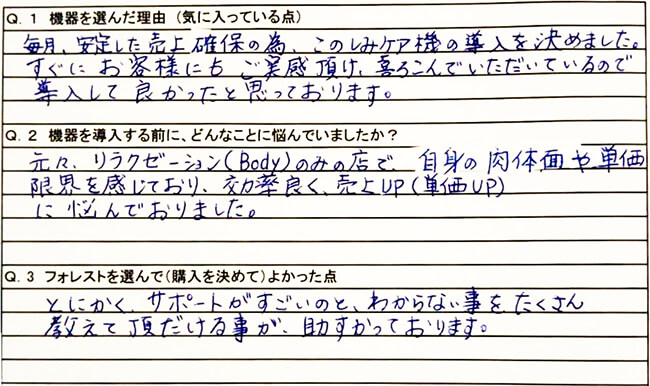 Q. 1 機器を選んだ理由（気に入っている点）
毎月、安定した売上確保の為、このしみケア機の導入を決めました。
すぐに お客様にも ご実感頂け、喜ろこんでいただいているので
導入して 良かったと 思っております。
Q. 2 機器を導入する前に、どんなことに悩んでいましたか？
元々、リラクゼーション(Body)のみの店で、自身の肉体面や単価
限界を感じており、効率良く、売上UP(単価UP)
に悩んでおりました。
Q. 3 フォレストを選んで（購入を決めて）よかった点
とにかく、サポートがすごいのと、わからない事を たくさん
教えて頂だける事が、助すかっております。